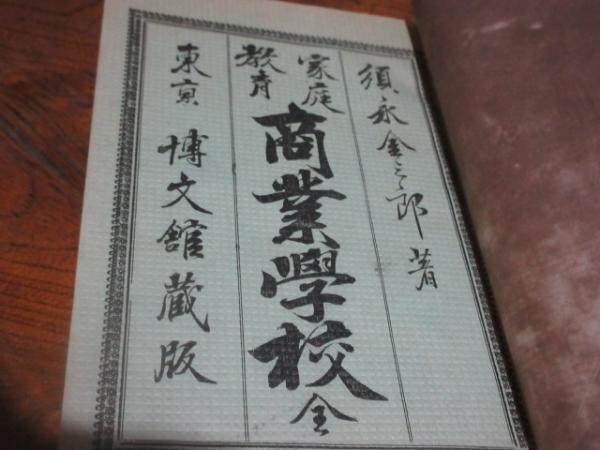 須永金三郎著
家庭
教育
商業學校全
東京 博文館蔵版